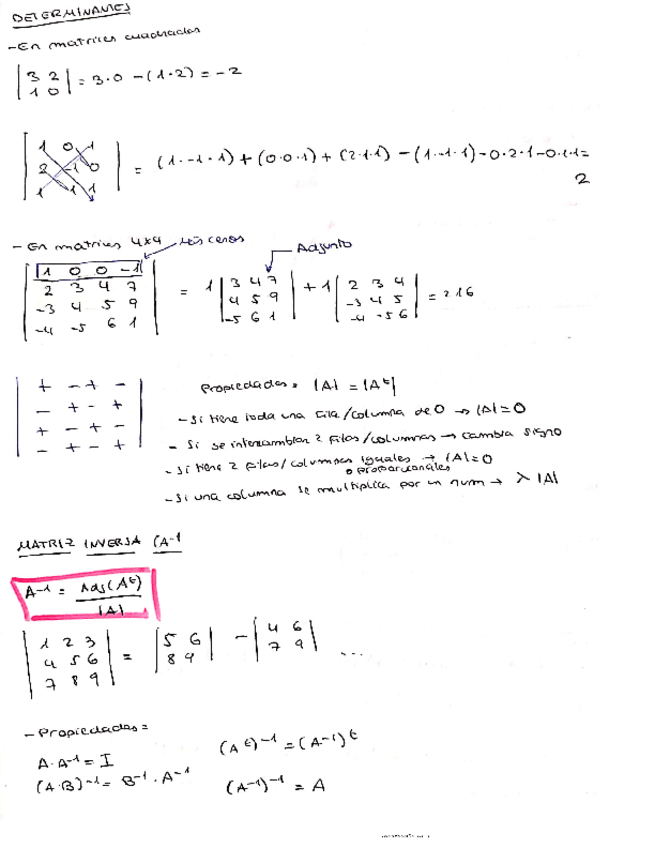 DETERMINANTES
- En matrices cuadradas
|3 2|
|1 0| = 3·0 - (1·2) = -2
|1 0 1|
|2 -1 0|
|1 1 1| = (1·-1·1) + (0·0·1) + (2·1·1) - (1·-1·1) - 0·2·1 - 0·1·1 =
2
- En matrices 4x4 más ceros
Adjunto
|1 0 0 -1|
|2 3 4 7|
|-3 4 5 9|
|-4 -5 6 1| = 1 |3 4 7| + 1 |2 3 4| = 216
|4 5 9| |-3 4 5|
|-5 6 1| |-4 -5 6|
|+ - + -|
|- + - +|
|+ - + -|
|- + - +|
Propiedades: |A| = |A^t|
- Si tiene toda una fila/columna de 0 → |A| = 0
- Si se intercambian 2 filas/columnas → cambia signo
- Si tiene 2 filas/columnas iguales → |A| = 0
o proporcionales
- Si una columna se multiplica por un num → λ |A|
MATRIZ INVERSA (A^-1
A^-1 = Adj(A^t) / |A|
|1 2 3|
|4 5 6|
|7 8 9| = |5 6| - |4 6| ...
|8 9| |7 9|
- Propiedades =
A·A^-1 = I
(A^t)^-1 = (A^-1)^t
(A·B)^-1 = B^-1 · A^-1
(A^-1)^-1 = A